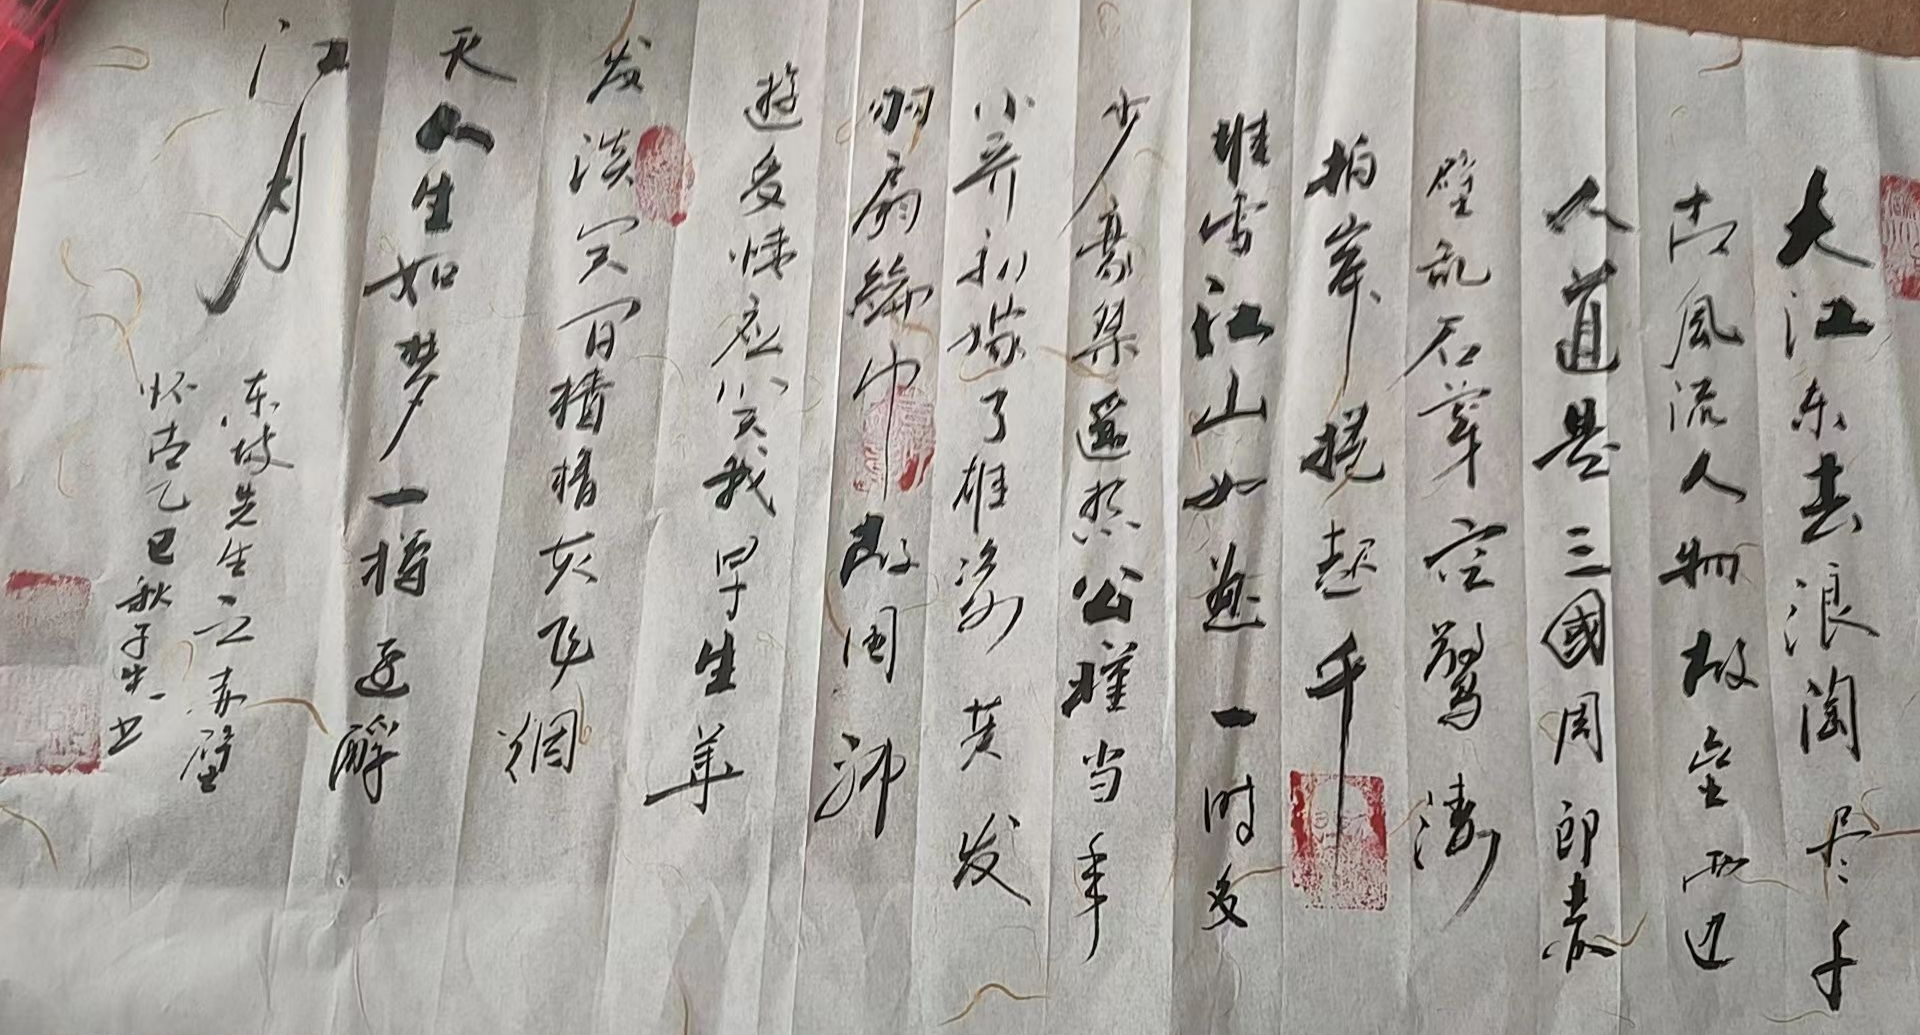 大江东去浪淘尽千
古風流人物故壘西边
人道是三國周郎赤
壁乱石穿空驚濤
拍岸捲起千
堆雪江山如画一时多
少豪杰遥想公瑾当年
小乔初嫁了雄姿英发
羽扇綸巾故国神
遊多情应笑我早生华
发谈笑间樯橹灰飞烟
灭人生如梦一樽还酹
江月
东坡先生之赤壁
怀古乙巳秋子书